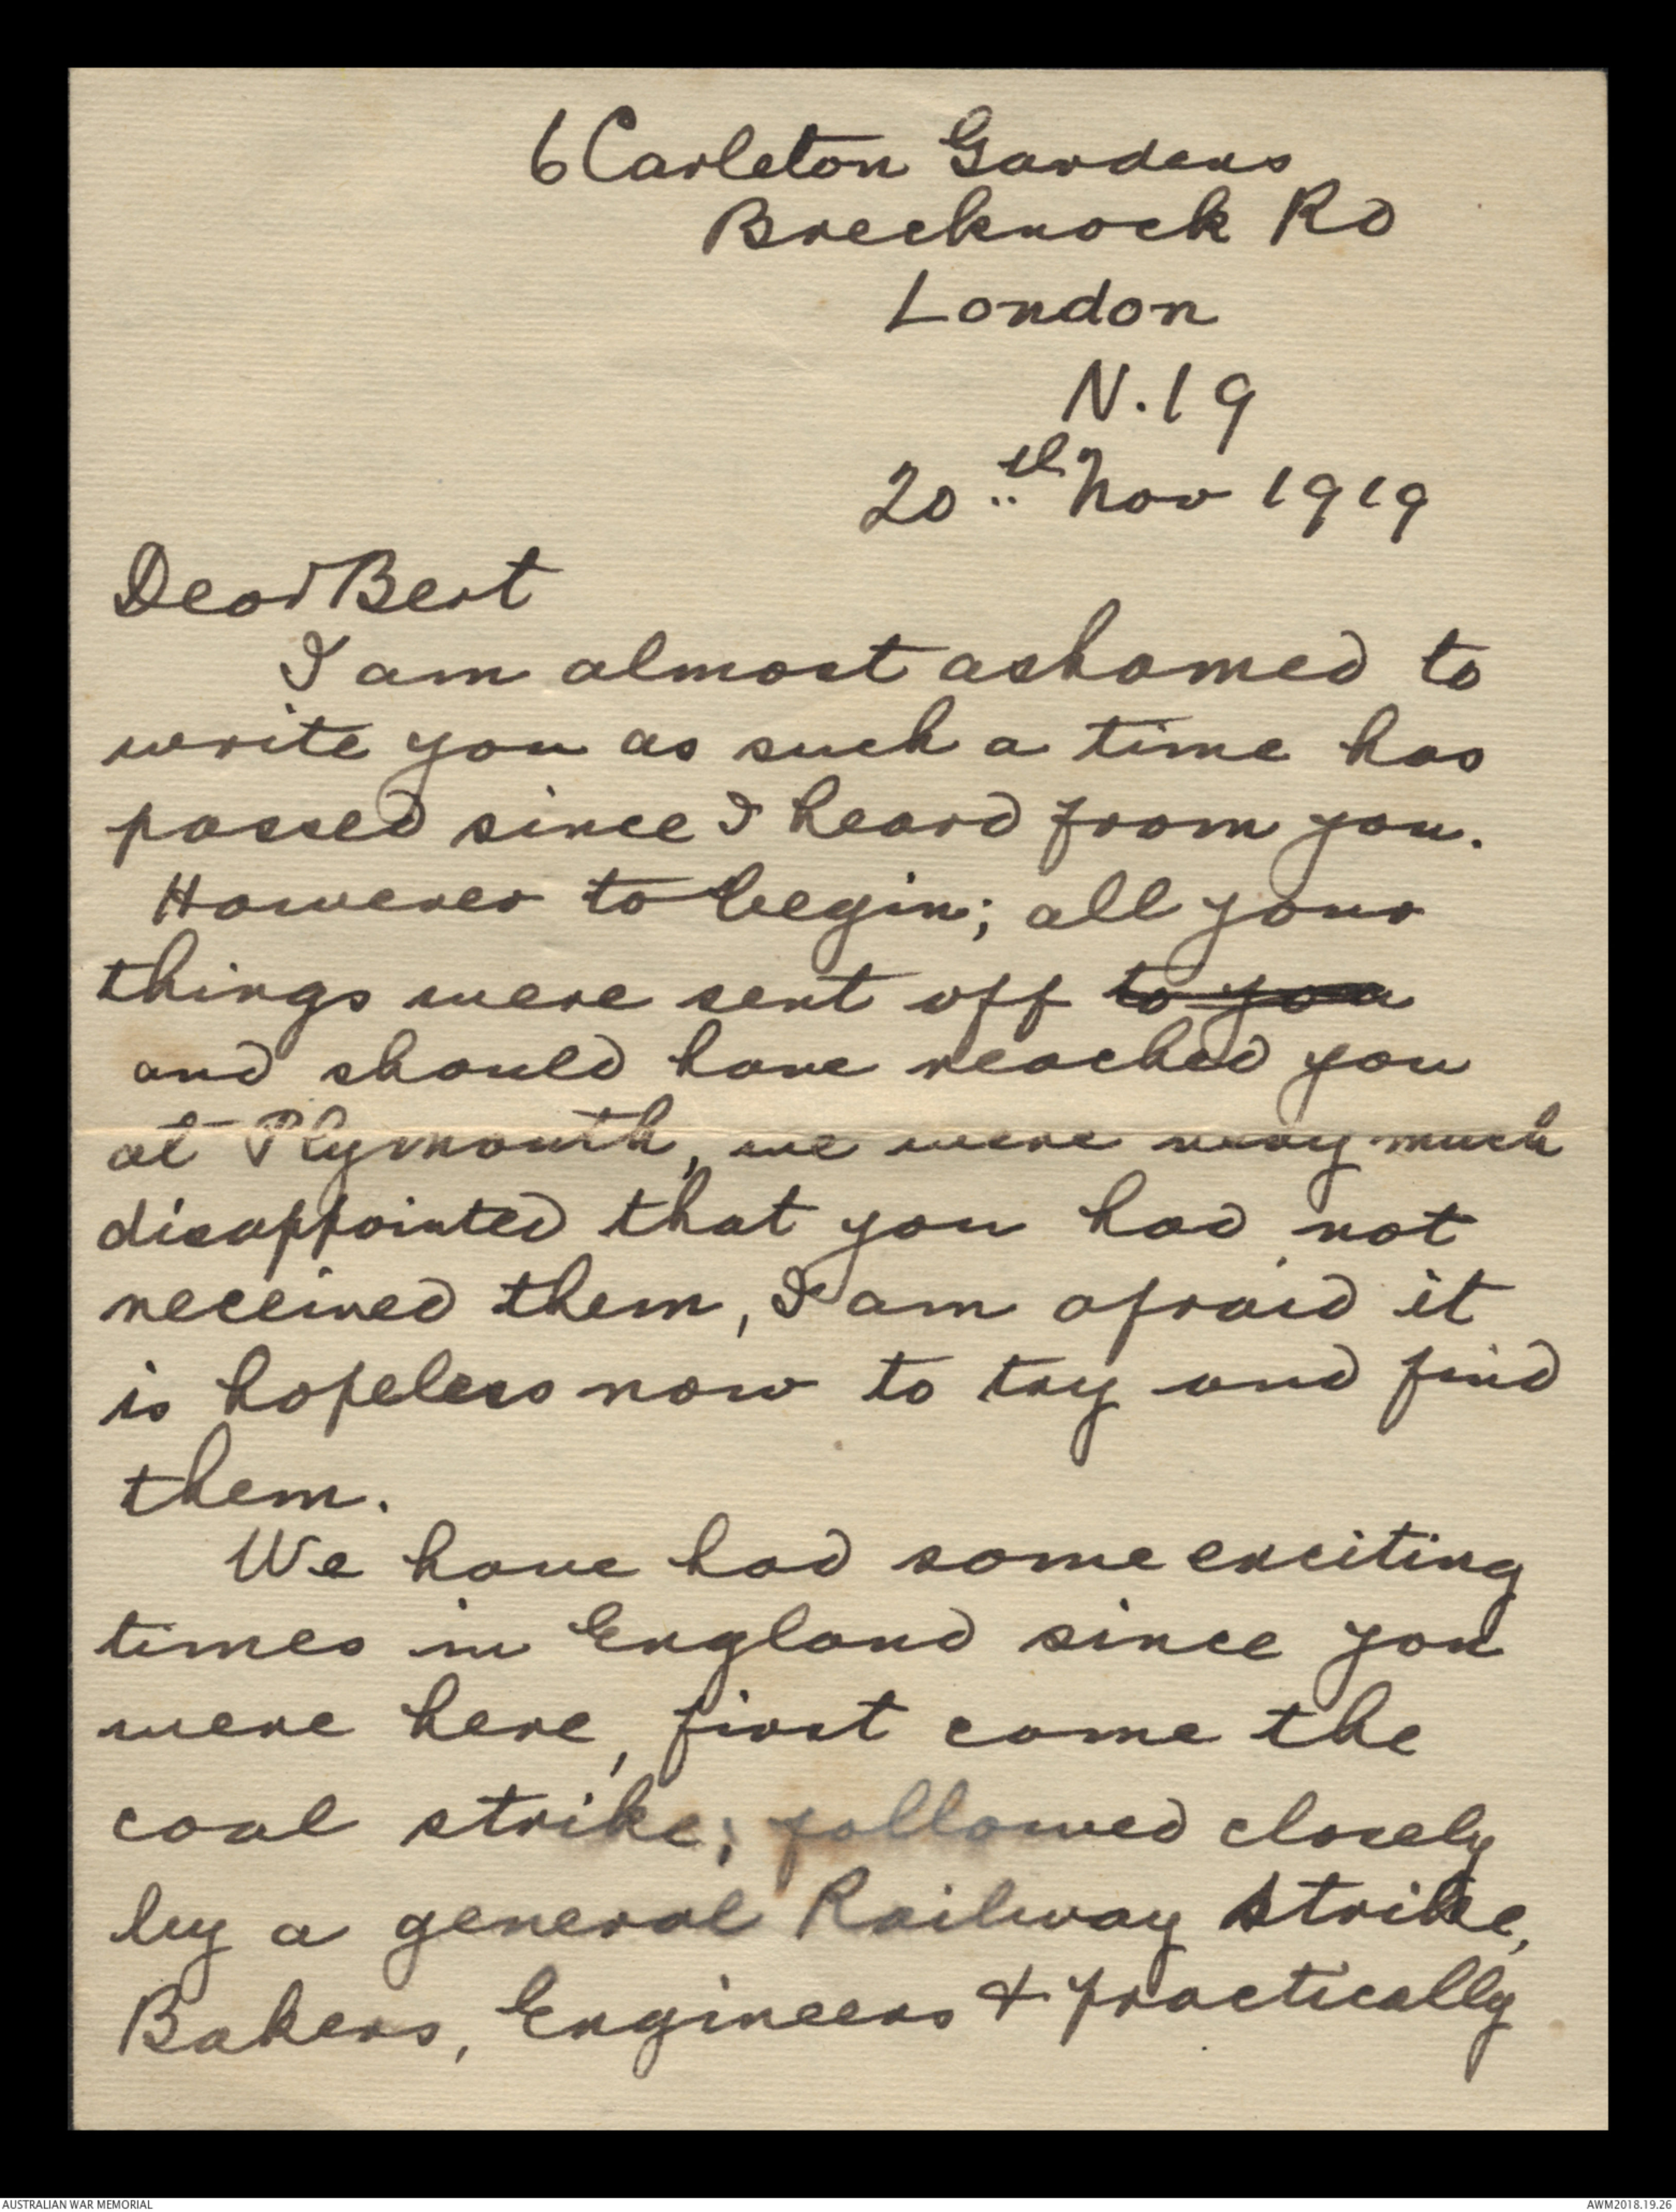 6 Carleton Gardens
Brecknock Rd
London
N.19
20th Nov 1919
Dear Bert
I am almost ashamed to
write you as such a time has
passed since I heard from you.
However to begin; all your
things were sent off to you
and should have reached you
at Plymouth, we were very much
disappointed that you had not
received them, I am afraid it
is hopeless now to try and find
them.
We have had some exciting
times in England since you
were here, first came the
coal strike; followed closely
by a general Railway strike,
Bakers, Engineers & practically
AUSTRALIAN WAR MEMORIAL
AWM2018.19.26